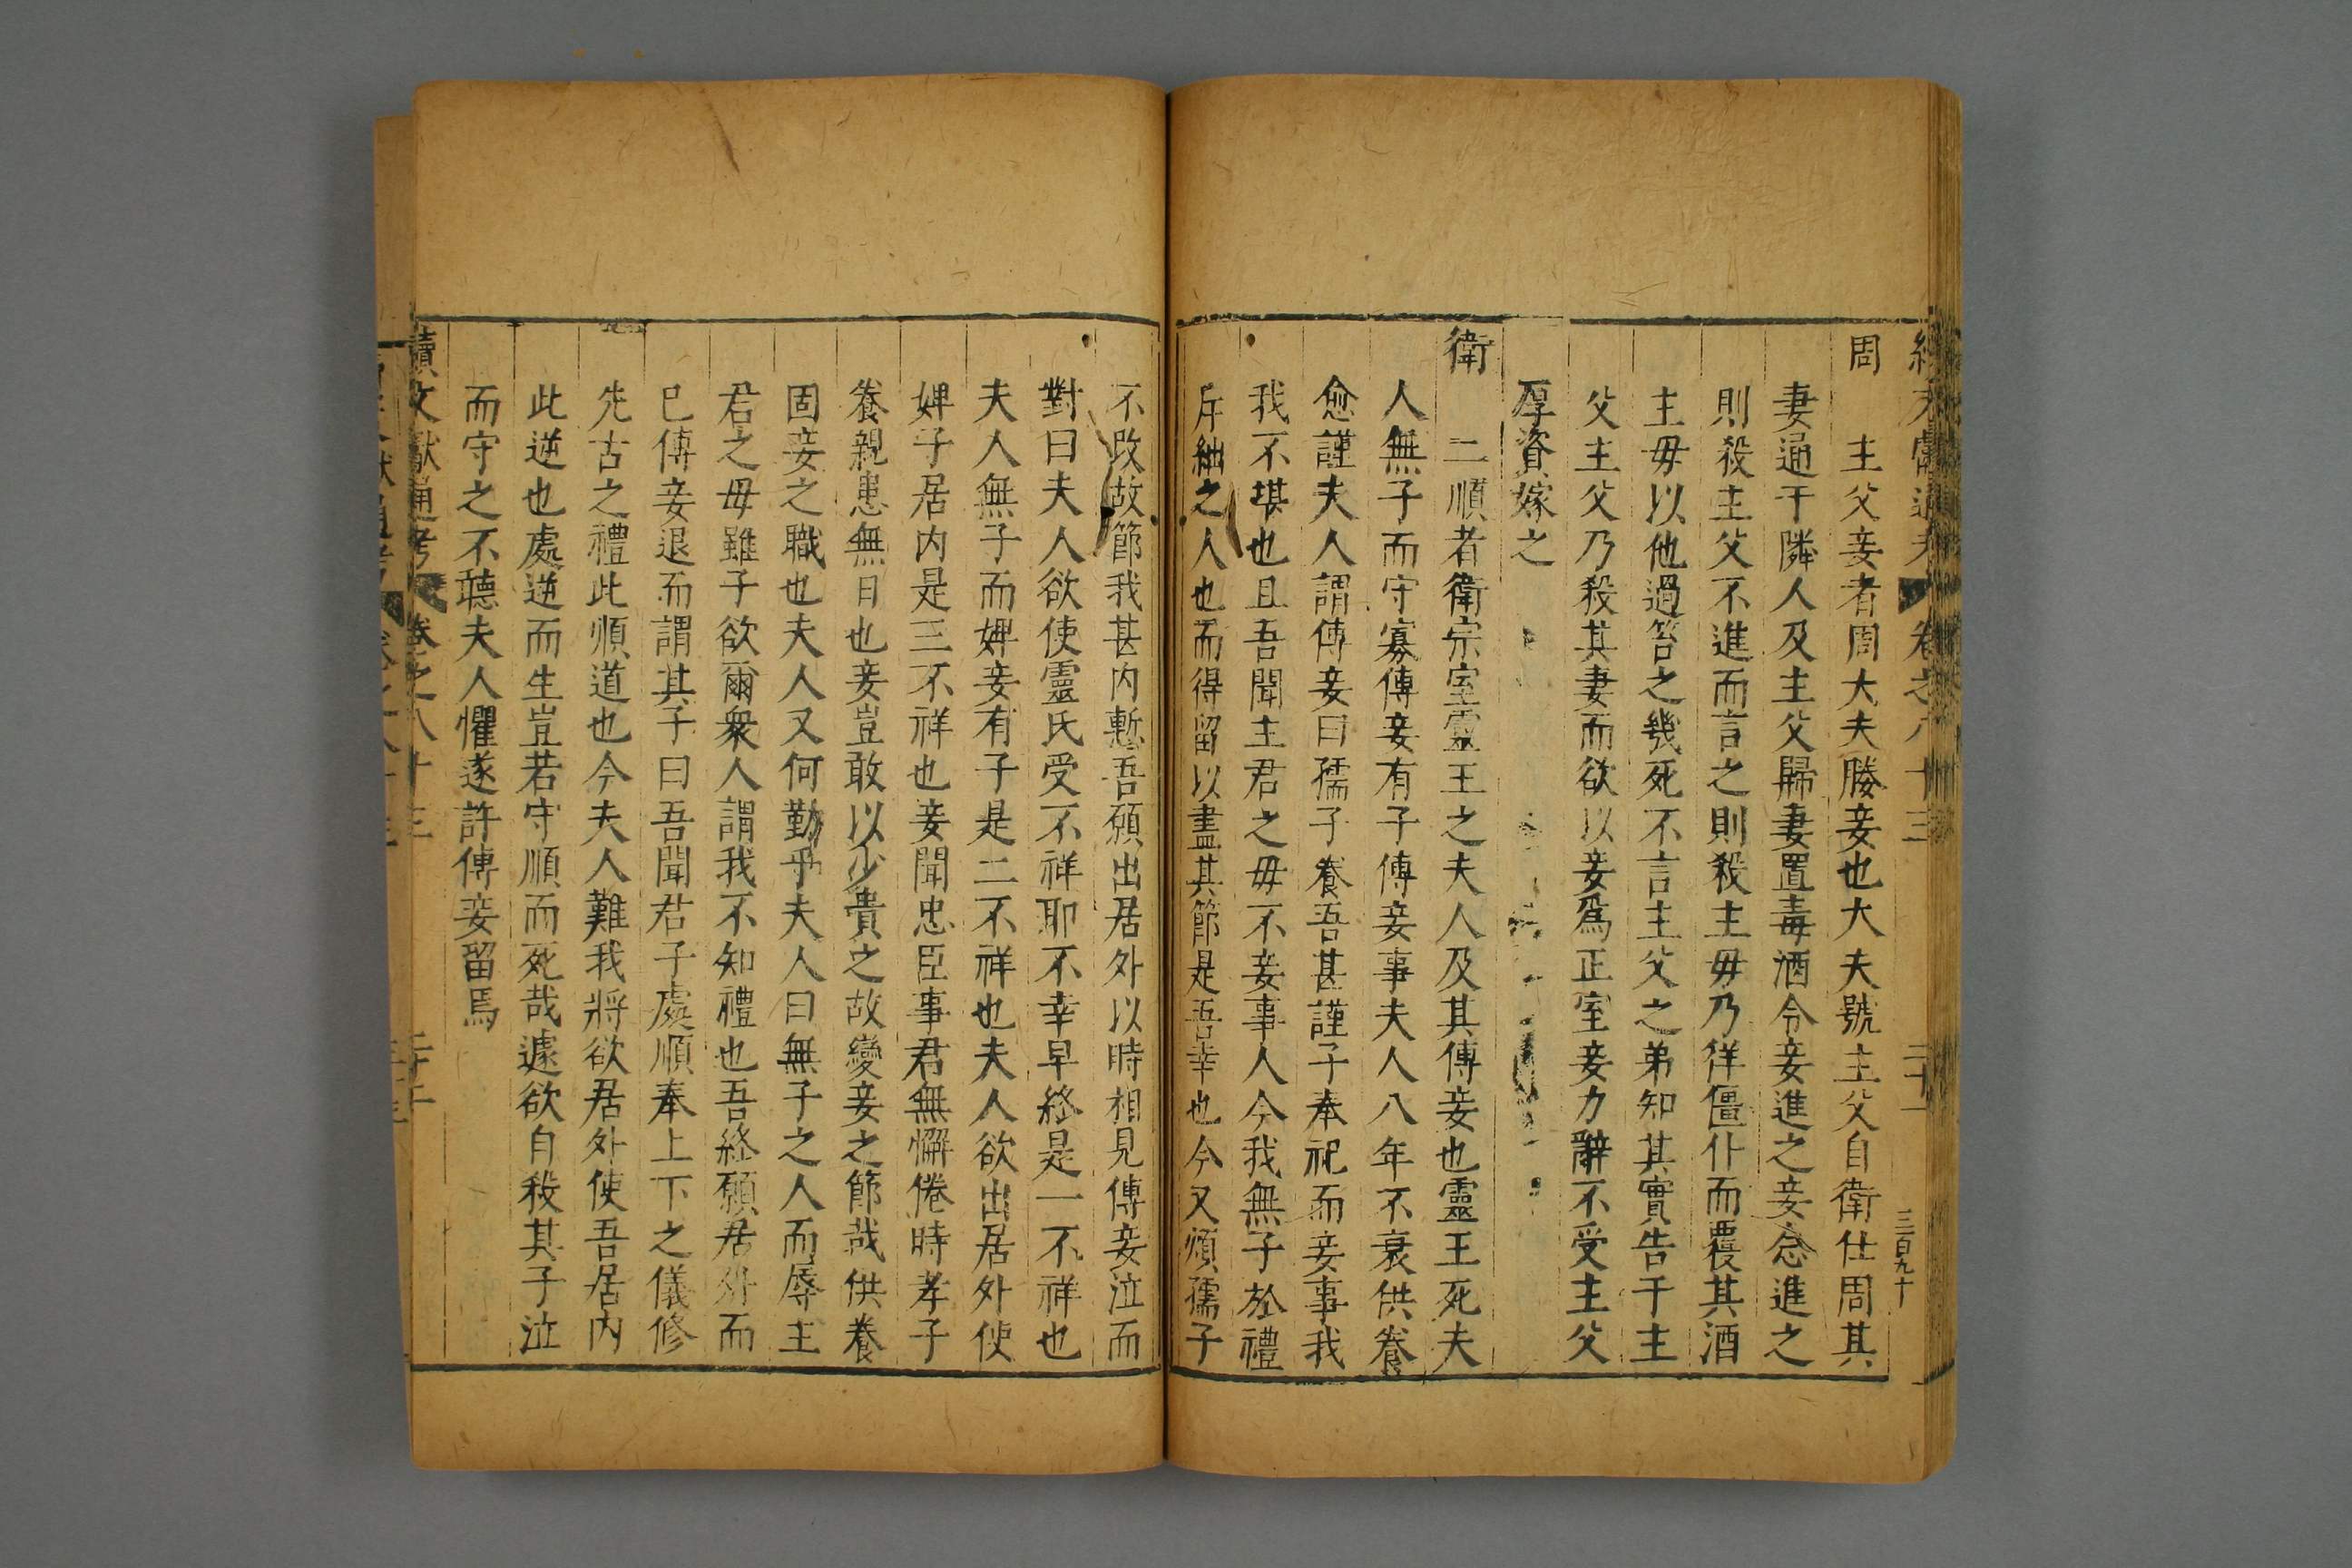 周
主父妾者周大夫媵妾也大夫號主父自衛仕周其
妻通于隣人及主父歸妻置毒酒令妾進之妾念進之
則殺主父不進而言之則殺主毋乃徉僵仆而覆其酒
主毋以他過笞之幾死不言主父之弟知其實告于主
父主父乃殺其妻而欲以妾爲正室妾力辭不受主父
厚資嫁之
衛
二順者衛宗室靈王之夫人及其傅妾也靈王死夫
人無子而守寡傅妾有子傅妾事夫人八年不衰供養
愈謹夫人謂傅妾曰孺子養吾甚謹子奉祀而妾事我
我不堪也且吾聞主君之毋不妾事人今我無子於禮
斥絀之人也而得留以盡其節是吾幸也今又煩孺子
不改故節我甚内慙吾願出居外以時相見傅妾泣而
對曰夫人欲使靈氏受不祥耶不幸早終是一不祥也
夫人無子而婢妾有子是二不祥也夫人欲出居外使
婢子居内是三不祥也妾聞忠臣事君無懈倦時孝子
養親患無日也妾豈敢以少貴之故變妾之節哉供養
固妾之職也夫人又何勤乎夫人曰無子之人而辱主
君之毋雖子欲爾衆人謂我不知禮也吾終願居外而
已傅妾退而謂其子曰吾聞君子處順奉上下之儀修
先古之禮此順道也今夫人難我將欲居外使吾居内
此逆也處逆而生豈若守順而死哉遽欲自殺其子泣
而守之不聽夫人懼遂許傅妾留焉
續文獻通考 卷之八十三 二十一
三百九十